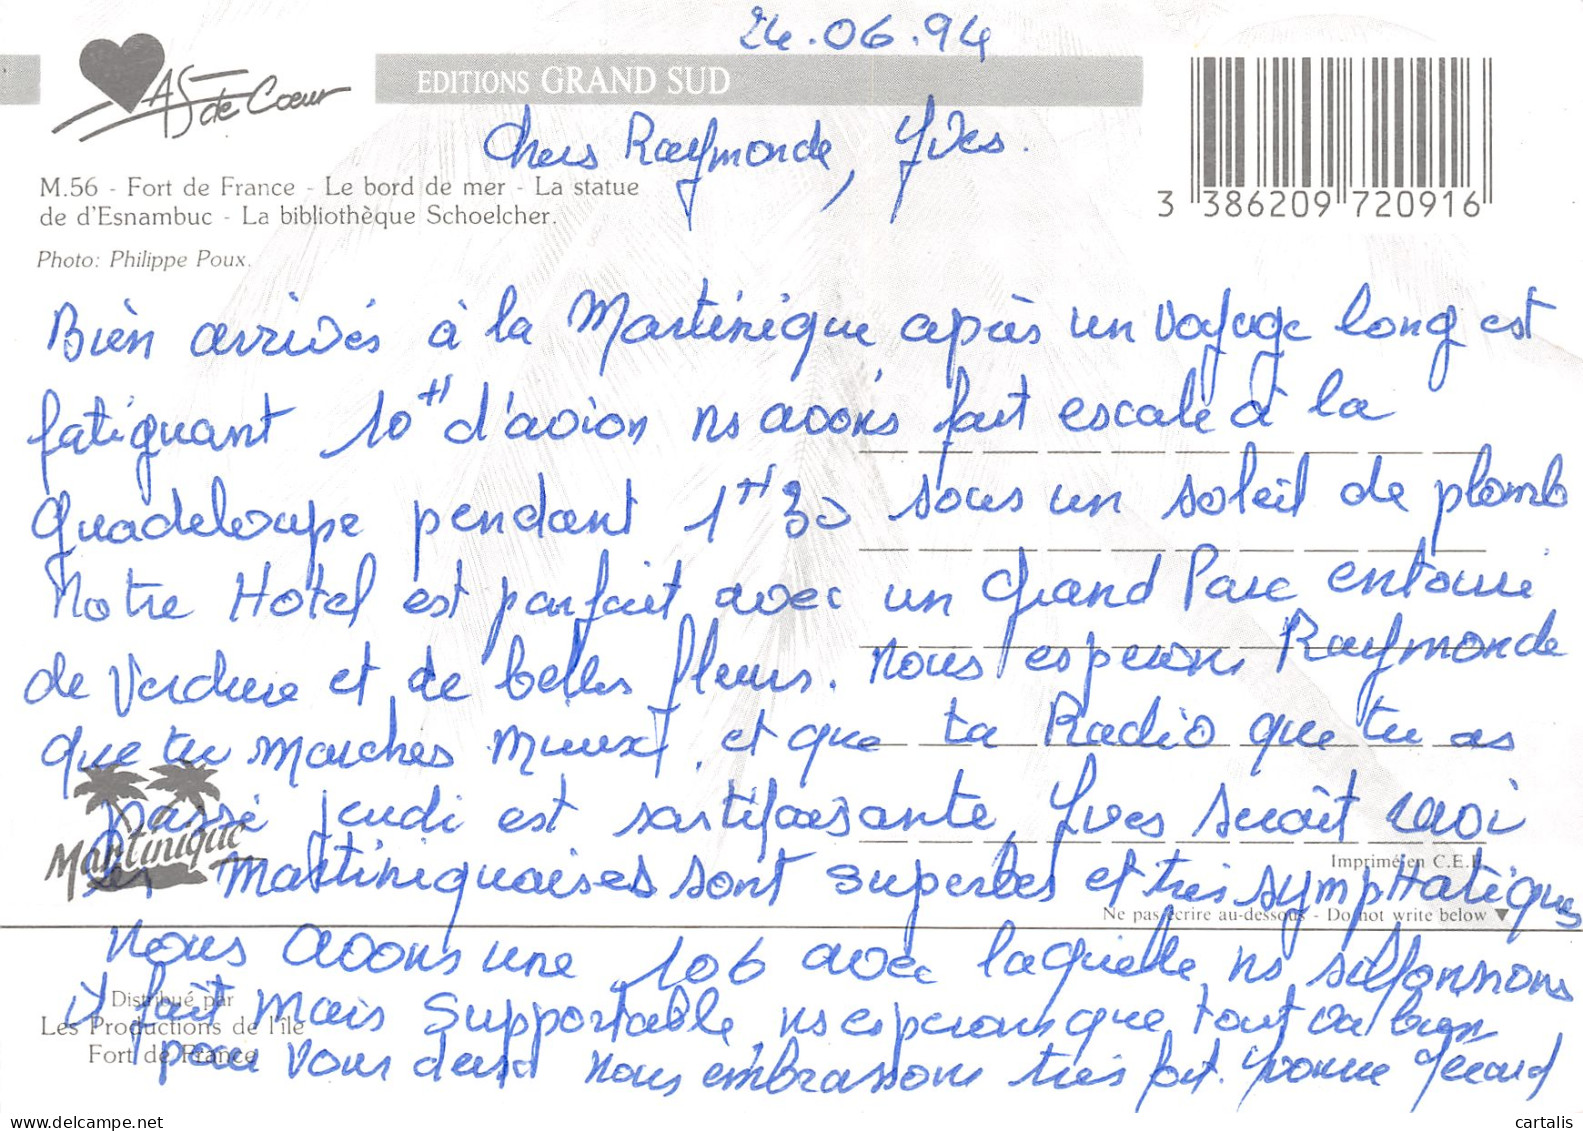 24.06.94
AS de Coeur
EDITIONS GRAND SUD
Chers Raymonde, Yves.
M.56 - Fort de France - Le bord de mer - La statue
de d'Esnambuc - La bibliothèque Schoelcher.
Photo: Philippe Poux.
3 386209 720916
Bien arrivés à la Martinique après un voyage long est
fatiguant 10H d'avion ns avons fait escale à la
Guadeloupe pendant 1H30 sous un soleil de plomb
Notre Hotel est parfait avec un grand Parc entouré
de verdure et de belles fleurs. Nous esperons Raymonde
que tu marches mieux, et que ta Radio que tu as
passé jeudi est sastifaisante, Yves serait ravi
les Martiniquaises sont superbes et très sympHatiques
Nous avons une 106 avec laquelle ns sillonnons
il fait mais supportable, ns esperons que tout va bien
pour vous deux nous embrassons très fort. Yvonne Gérard
Martinique
Imprimé en C.E.E.
Ne pas écrire au-dessous - Do not write below
Distribué par
Les Productions de l'île
Fort de France
www.delcampe.net
cartalis